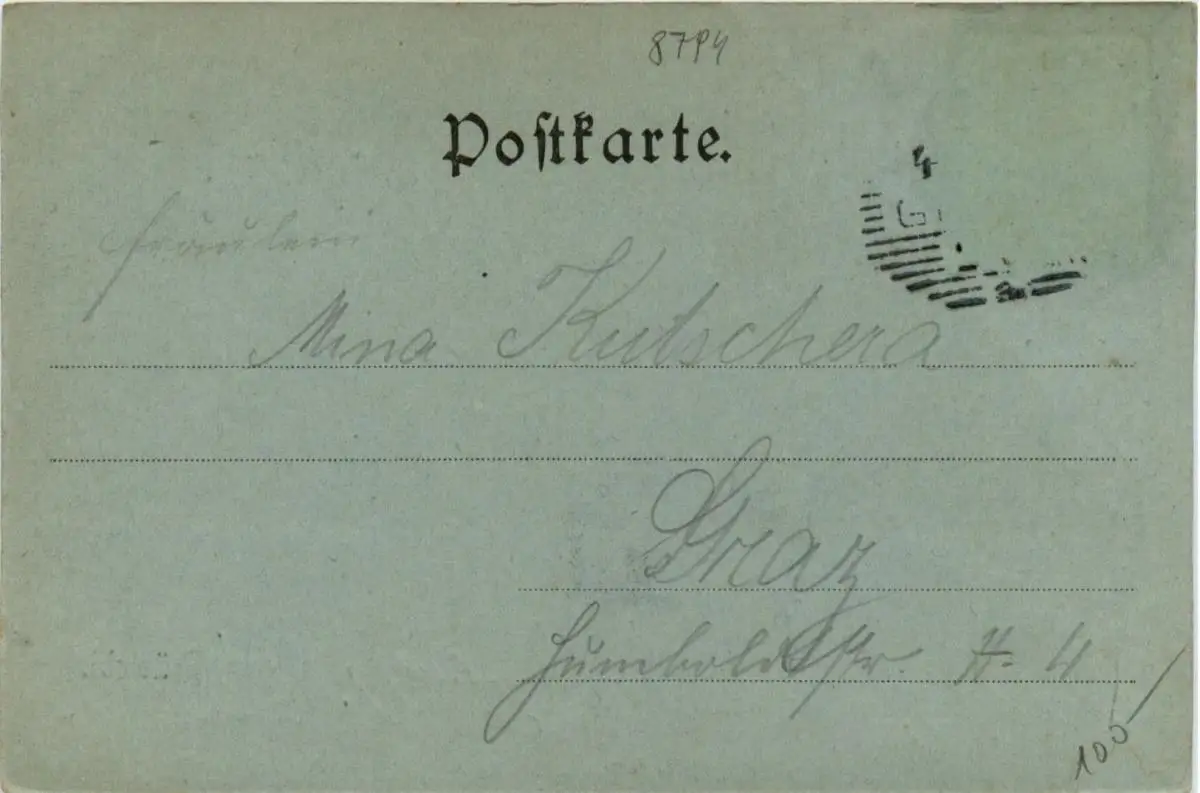 8794
Postkarte.
Fräulein
Mina Kutschera
Graz
Humboldtstr. 4
100